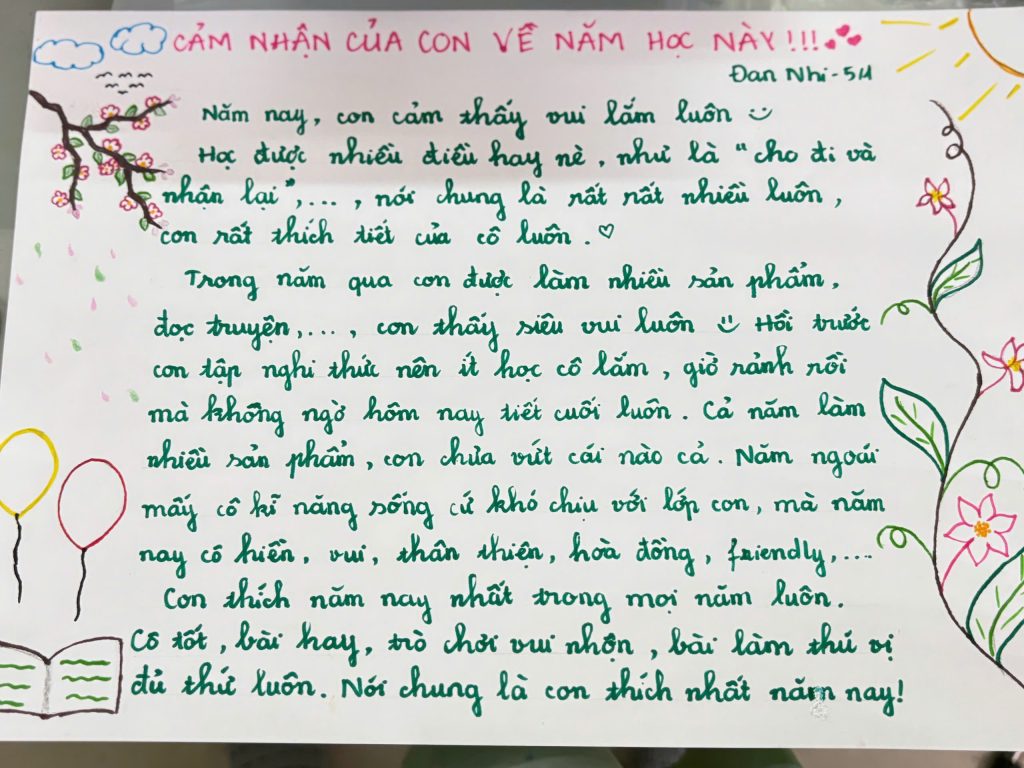 CẢM NHẬN CỦA CON VỀ NĂM HỌC NÀY!!!
Đan Nhi - 5H
Năm nay, con cảm thấy vui lắm luôn
Học được nhiều điều hay nè, như là "cho đi và
nhận lại",..., nói chung là rất rất nhiều luôn,
con rất thích tiết của cô luôn. ♡
Trong năm qua con được làm nhiều sản phẩm,
đọc truyện,..., con thấy siêu vui luôn Hồi trước
con tập nghi thức nên ít học cô lắm, giờ rảnh rồi
mà không ngờ hôm nay tiết cuối luôn. Cả năm làm
nhiều sản phẩm, con chưa vứt cái nào cả. Năm ngoái
mấy cô kĩ năng sống cứ khó chịu với lớp con, mà năm
nay cô hiền, vui, thân thiện, hoà đồng, friendly,...
Con thích năm nay nhất trong mọi năm luôn.
Cô tốt, bài hay, trò chơi vui nhộn, bài làm thú vị
đủ thứ luôn. Nói chung là con thích nhất năm nay!